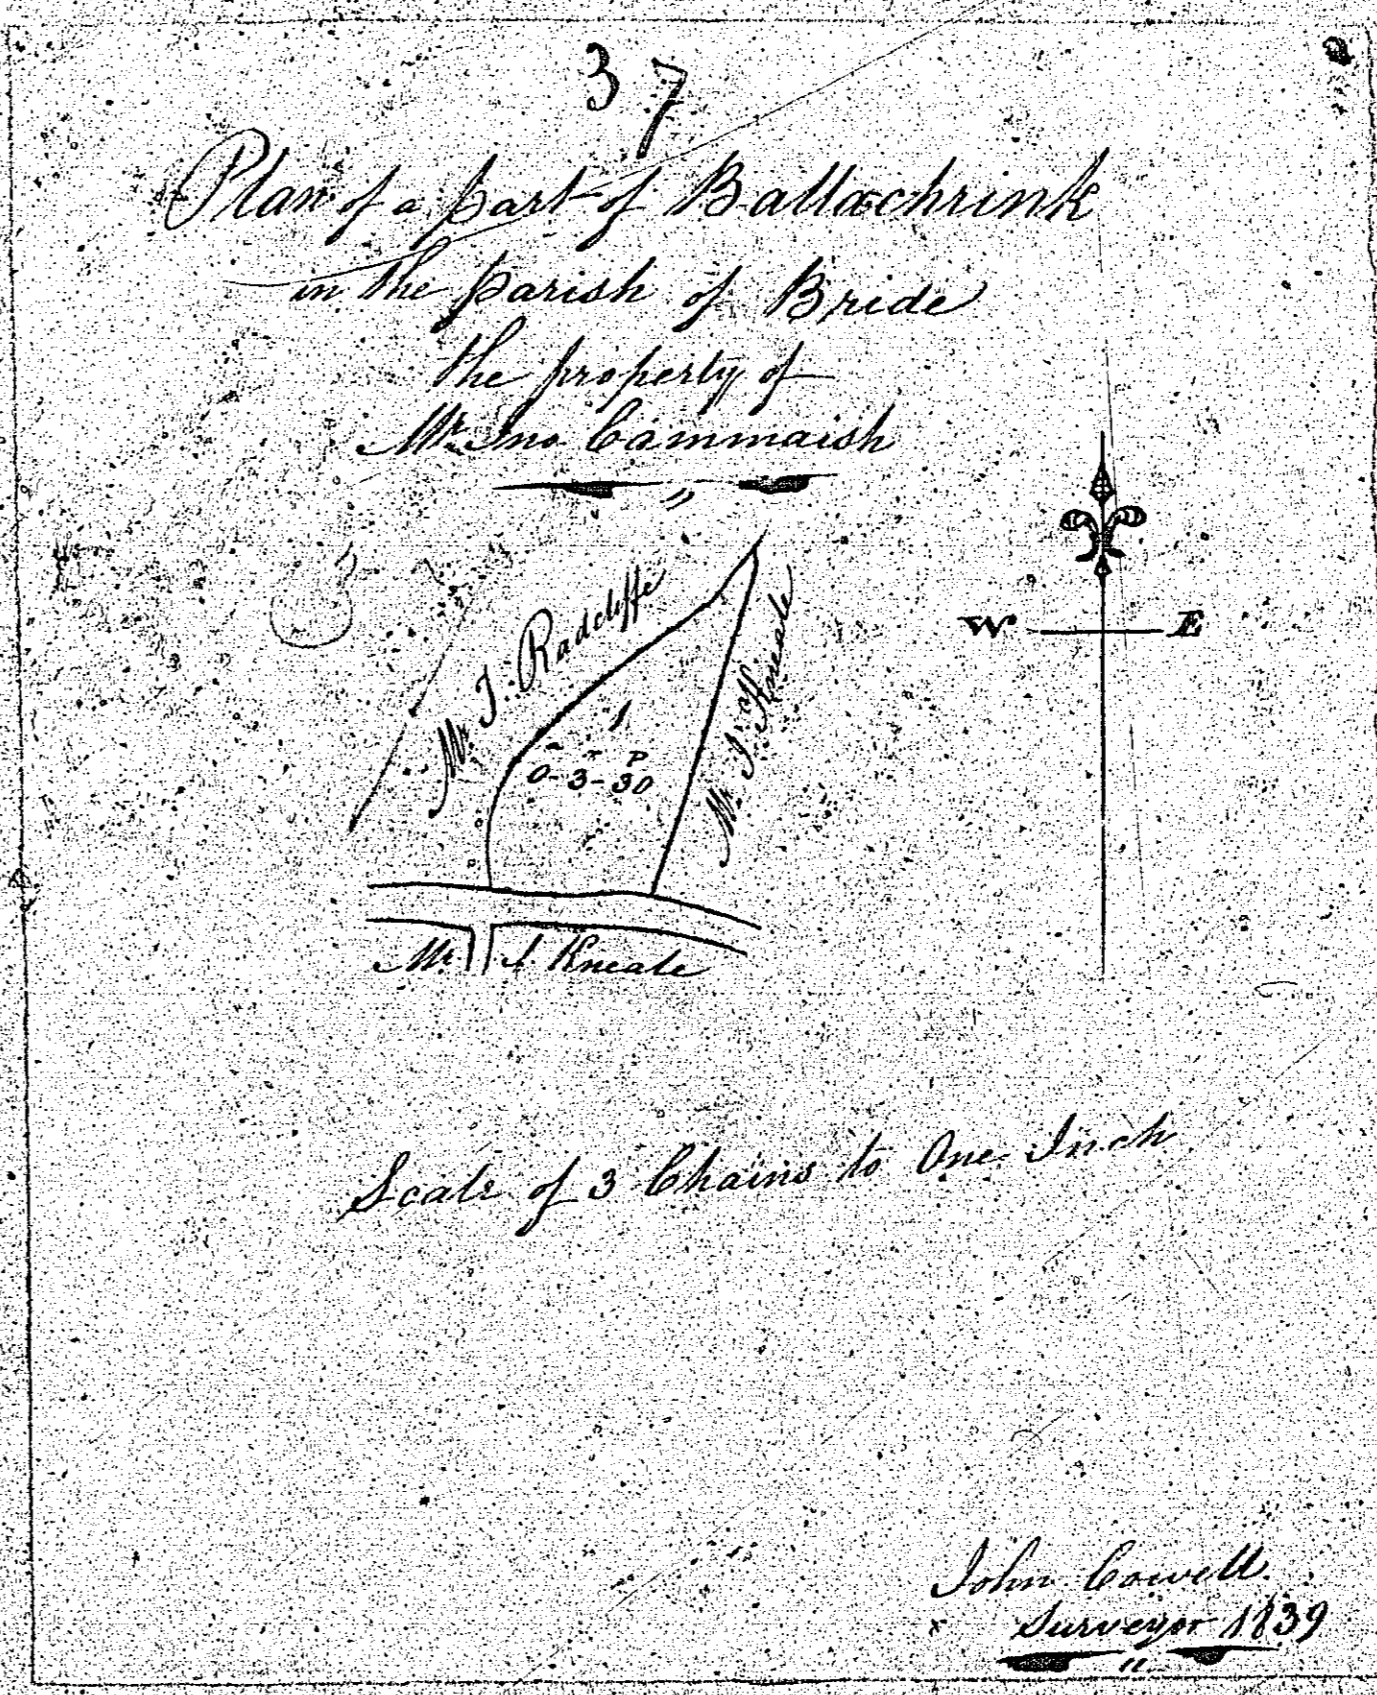 37
Plan of a part of Ballachrink
in the parish of Bride
the property of
Mr. Jno. Cammaish
Mr. J. Radcliffe
Mr. J. Kneale
1
a r P
0-3-30
W E
Mr. J. Kneale
Scale of 3 Chains to One Inch
John Cowell
Surveyor 1839